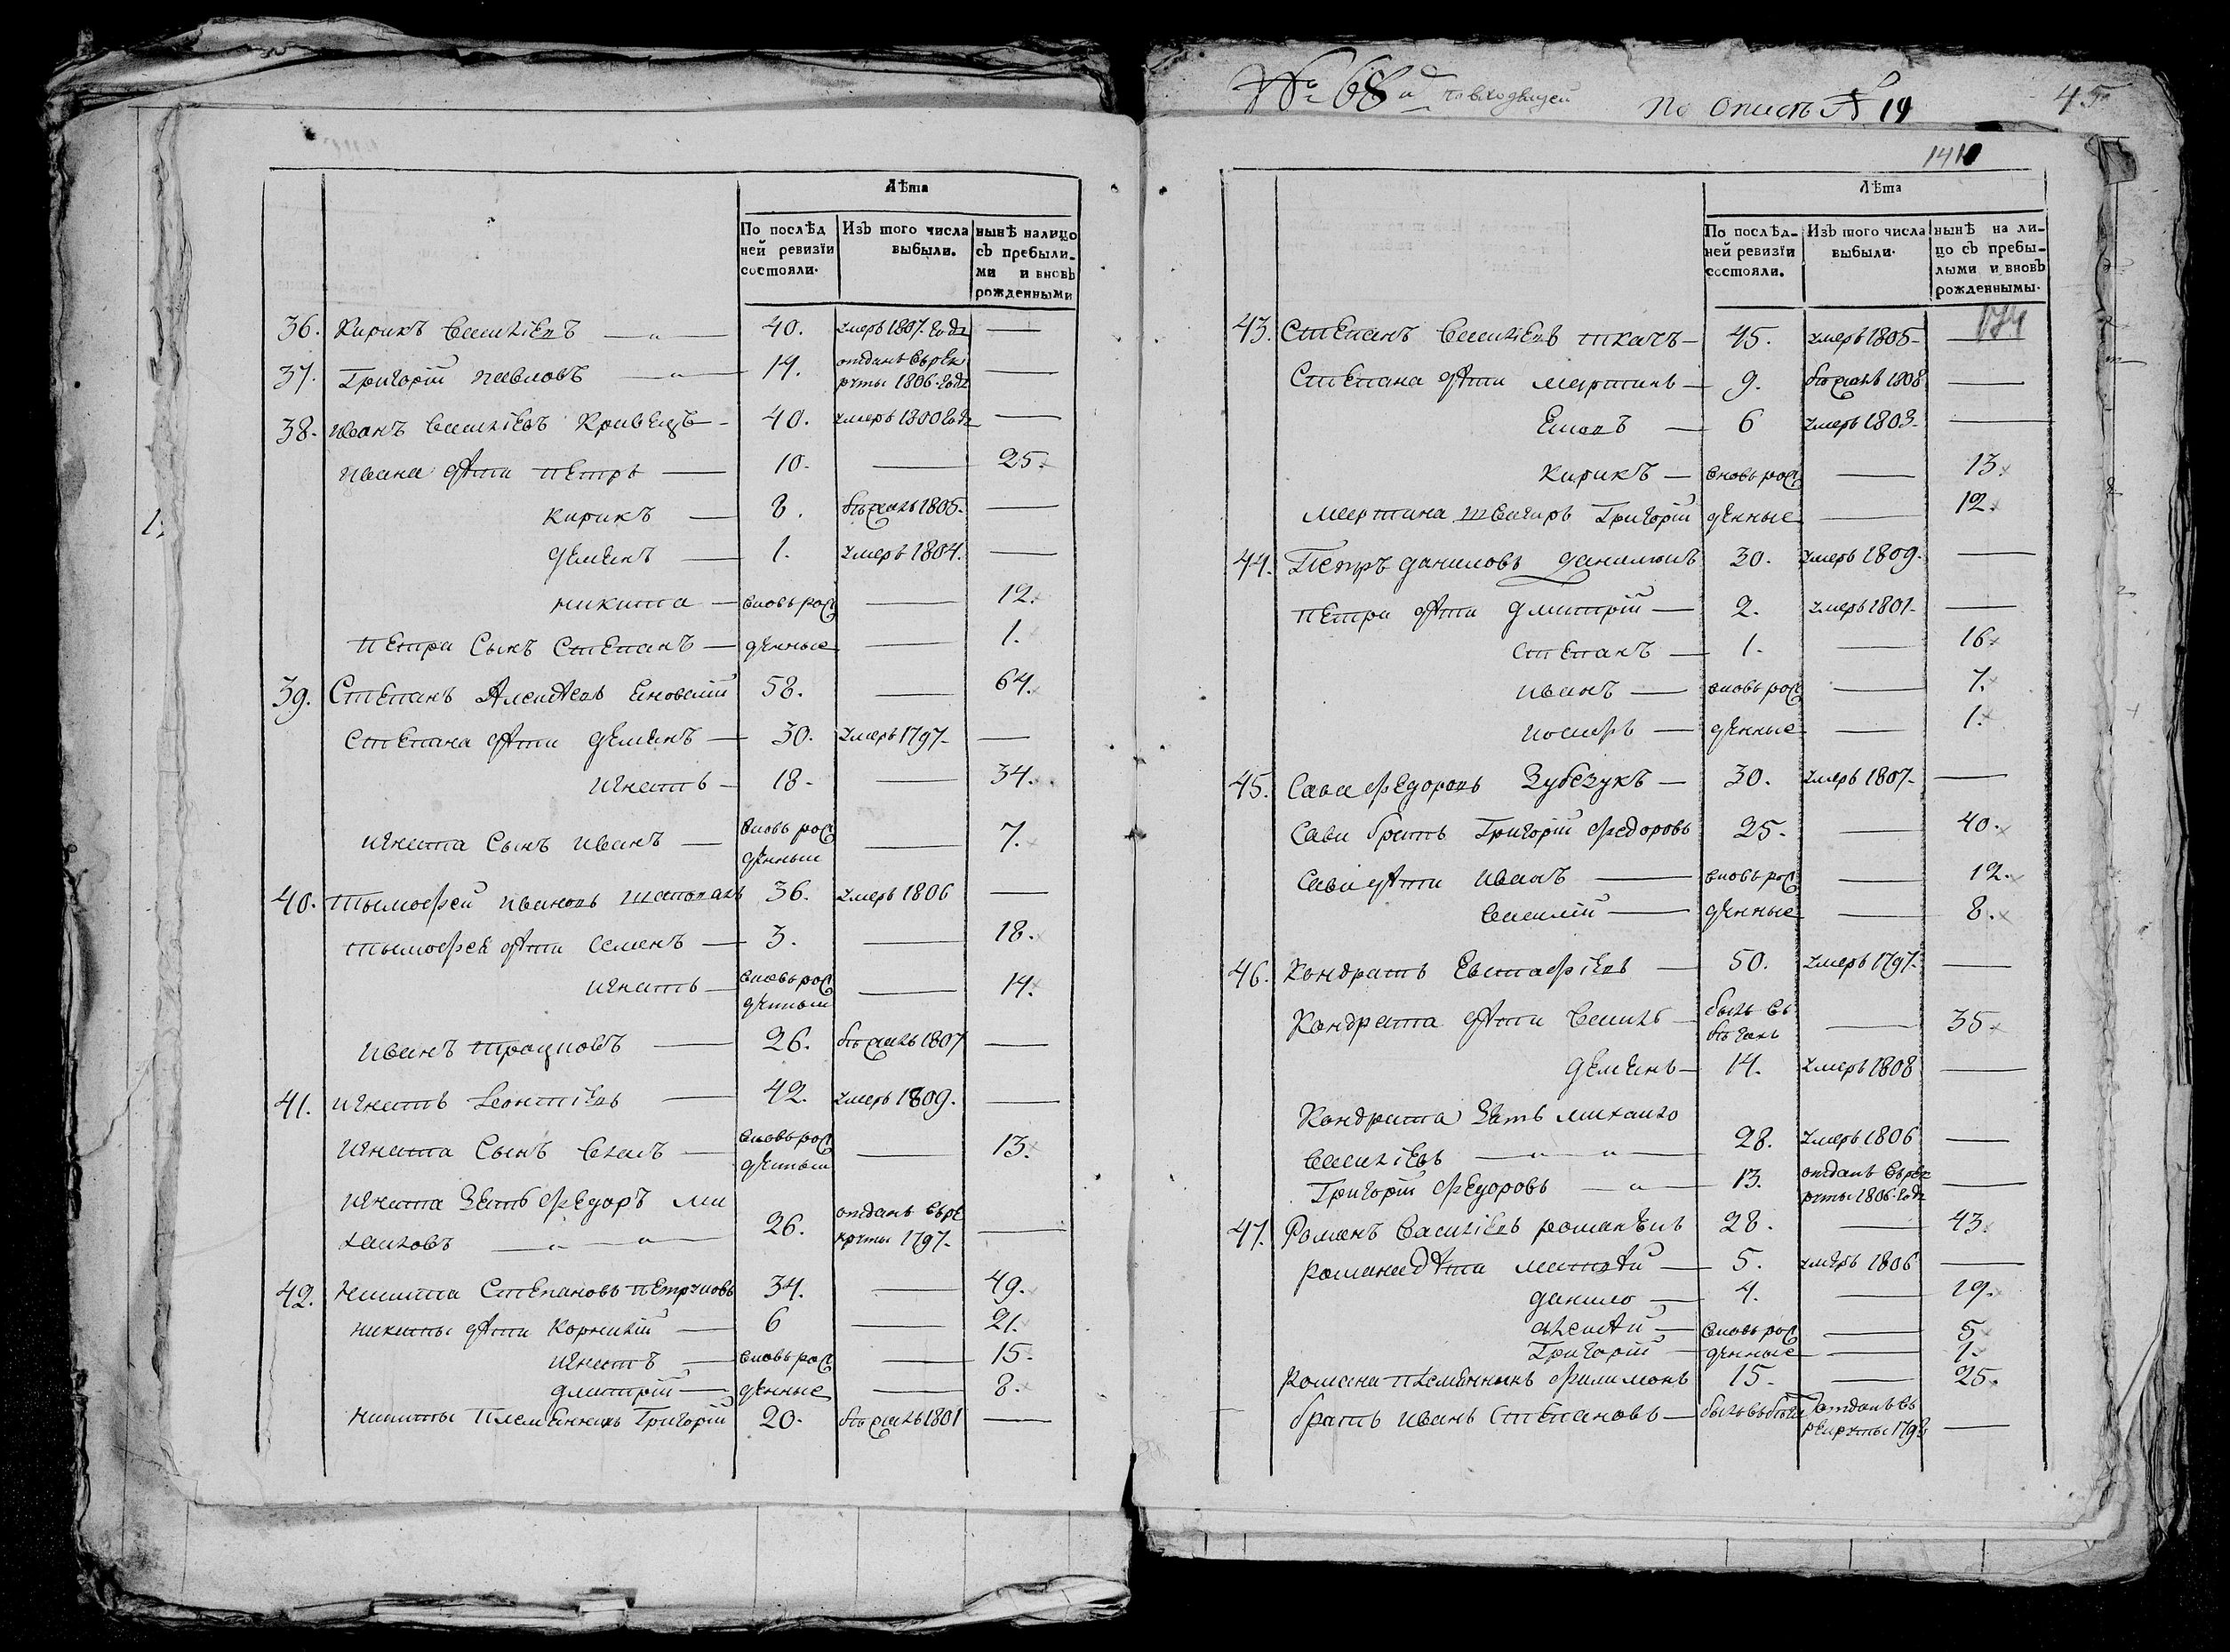 Лѣта
По послѣд
ней ревизїи
состояли.
Изъ того числа
выбыли.
нынѣ налицо
съ пребыли-
ми и вновь
рожденными
36. Кирикъ Василіевъ 40. умеръ 1807. года
37. Григорій павловъ 14. отданъ въ рек
руты 1806. года
38. иванъ Василіевъ Кривецъ 40. умеръ 1800 года
ивана дѣти пЕтръ 10. 25.
кирикъ 8. бѣжалъ 1805.
дЕмЕнъ 1. умеръ 1804.
никита вновь рож 12.
пЕтра Сынъ СтЕпанъ дЕнные 1.
39. СтЕпанъ Алексѣевъ 58. 64.
СтЕпана дѣти дЕмЕнъ 30. умеръ 1797.
игнатъ 18. 34.
игната Сынъ иванъ вновь рож 7.
дЕнный
40. тымофей ивановъ 36. умеръ 1806
тымофея дѣти семенъ 3. 18.
игнатъ вновь рож 14.
дЕнный
иванъ 26. бѣжалъ 1807
41. игнатъ Леонтіевъ 42. умеръ 1809.
игната Сынъ вновь рож 13.
дЕнный
игната Зять фЕдоръ ми
хайловъ 26. отданъ въ ре
круты 1797.
42. Никита СтЕпановъ пЕтруповъ 34. 49.
никиты дѣти Корнилій 6 21.
игнатъ вновь рож 15.
дмитрій дЕнные 8.
никиты племѣнникъ Григорій 20. бѣжалъ 1801
№ 68й по входящей
По описѣ № 19
45
1410
Лѣта
По послѣд-
ней ревизїи
состояли.
Изъ того числа
выбыли.
нынѣ на ли-
цо съ пребы-
лыми и вновь
рожденнымы.
174
43. СтЕпанъ Василіевъ ткачъ 45. умеръ 1805
СтЕпана дѣти мартинъ 9. бѣжалъ 1808
6 умеръ 1803.
кирикъ вновь рож 13.
мартина Григорій дЕнные 12.
44. Петръ даниловъ данилюкъ 30. умеръ 1809.
пЕтра дѣти дмитрій 2. умеръ 1801.
стЕпанъ 1. 16
иванъ вновь рож 7.
иосифъ дЕнные 1.
45. Сава фЕдоровъ 30. умеръ 1807.
Савы братъ Григорій федоровъ 25. 40.
Савы дѣти иванъ вновь рож 12.
василій дЕнные 8.
46. Кондратъ Евстафіевъ 50. умеръ 1797.
Кондрата дѣти Василь былъ въ 35
бѣгахъ
дЕмЕнъ 14. умеръ 1808
Кондрата Зять михайло
василіевъ 28. умеръ 1806
Григорій фЕдоровъ 13. отданъ въ рек
руты 1806. года
47. Романъ Василіевъ 28. 43.
романа дѣти матвѣй 5. умеръ 1806
данило 4. 19.
алЕксѣй вновь рож 5
Григорій дЕнные 1.
Романа племѣнникъ филимонъ 15. 25.
братъ иванъ СтЕпановъ былъ въ бѣгах отданъ въ
рекруты 179